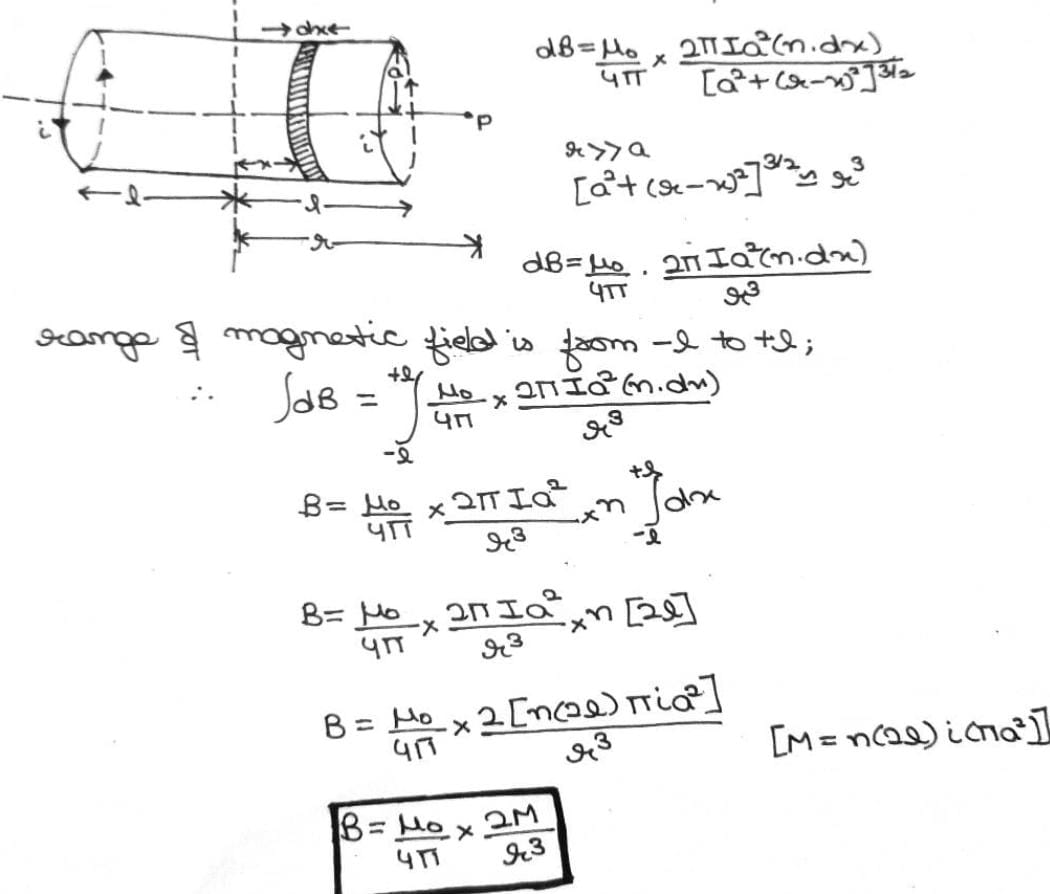 dx
a
i
i
P
x
l
l
r
dB = μ₀/4π × 2πIa²(n.dx)/[a²+(r-x)²]^3/2
r>>a
[a²+(r-x)²]^3/2 ≃ r³
dB = μ₀/4π . 2πIa²(n.dx)/r³
range of magnetic field is from -l to +l;
∴ ∫dB = ∫_{-l}^{+l} μ₀/4π × 2πIa²(n.dx)/r³
B = μ₀/4π × 2πIa²/r³ × n ∫_{-l}^{+l} dx
B = μ₀/4π × 2πIa²/r³ × n [2l]
B = μ₀/4π × 2[n(2l)πia²]/r³ [M = n(2l)i(πa²)]
B = μ₀/4π × 2M/r³